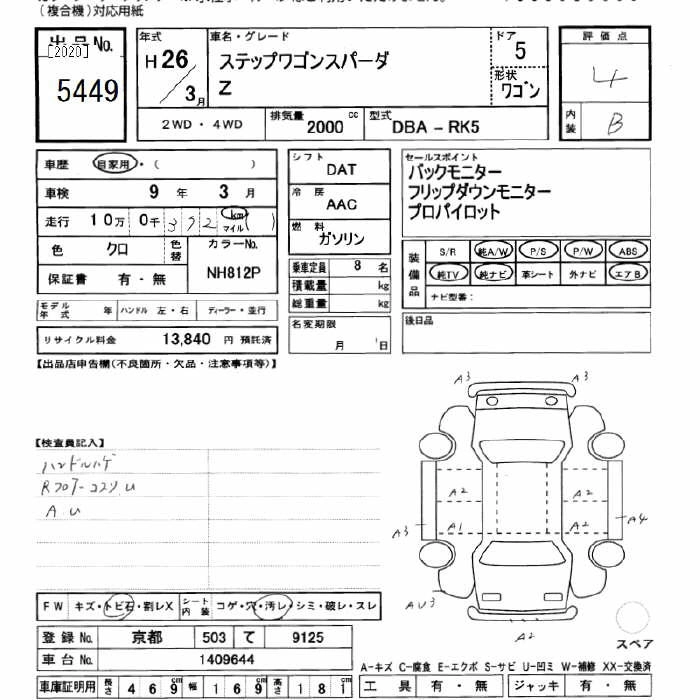 (複合機)対応用紙
出品No.
[2020]
5449
年式
H 26/3月
車名・グレード
ステップワゴンスパーダ
Z
ドア
5
形状
ワゴン
2WD・4WD
排気量 2000 cc
型式 DBA-RK5
評価点
4
内装 B
車歴 自家用・( )
車検 9年 3月
走行 10万 0千 392 km マイル ( )
色 クロ 色替
カラーNo.
NH812P
保証書 有・無
モデル年式 年 ハンドル 左・右 ディーラー・並行
リサイクル料金 13,840 円 預託済
シフト
DAT
冷房
AAC
燃料
ガソリン
乗車定員 8 名
積載量 kg
総重量 kg
名変期限
月 日
セールスポイント
バックモニター
フリップダウンモニター
プロパイロット
装備品
S/R 純A/W P/S P/W ABS
純TV 純ナビ 革シート 外ナビ エアB
ナビ型番:
後日品
【出品店申告欄(不良箇所・欠品・注意事項等)】
【検査員記入】
ハンドルハゲ
Rフロアーコスリ.U
A.U
A3 A3
A2 A2
A3 A1 A2 A4
AU3
A2
スペア
FW キズ・トビ石・割レX
シート内装 コゲ・穴・汚レ・シミ・破レ・スレ
登録No. 京都 503 て 9125
車台No. 1409644
車庫証明用 長さ 469cm 幅 169cm 高さ 181cm
A-キズ C-腐食 E-エクボ S-サビ U-凹ミ W-補修 XX-交換済
工具 有・無 ジャッキ 有・無